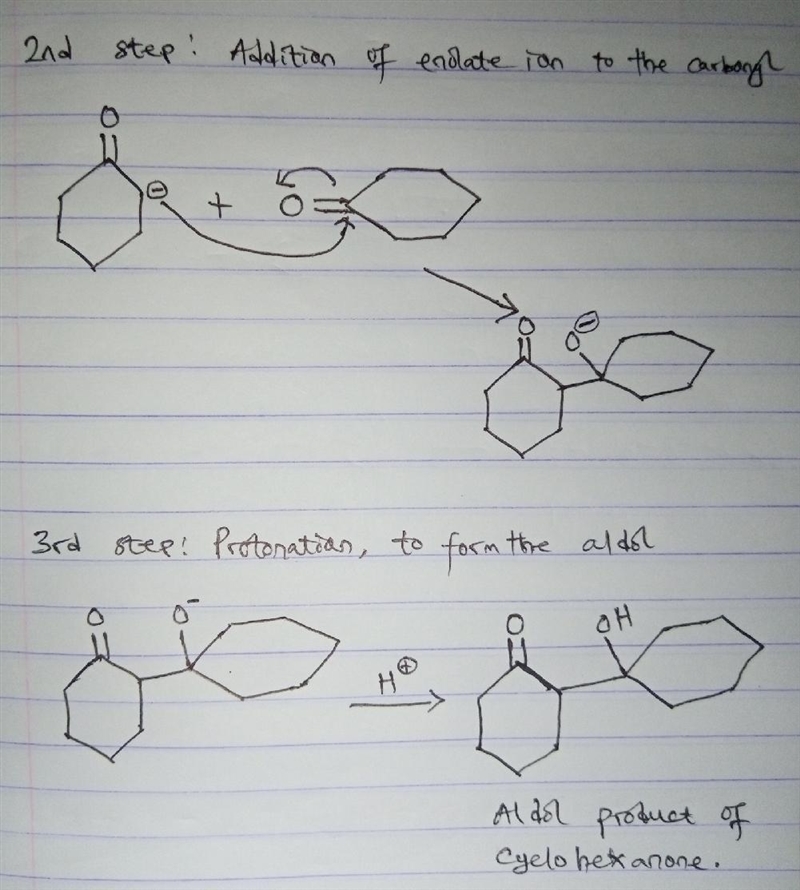 2nd step: Addition of enolate ion to the carbonyl
O
⊖ + O
O O⊖
3rd step: Protonation, to form the aldol
O O⁻
H⊕
O OH
Aldol product of
Cyclohexanone.